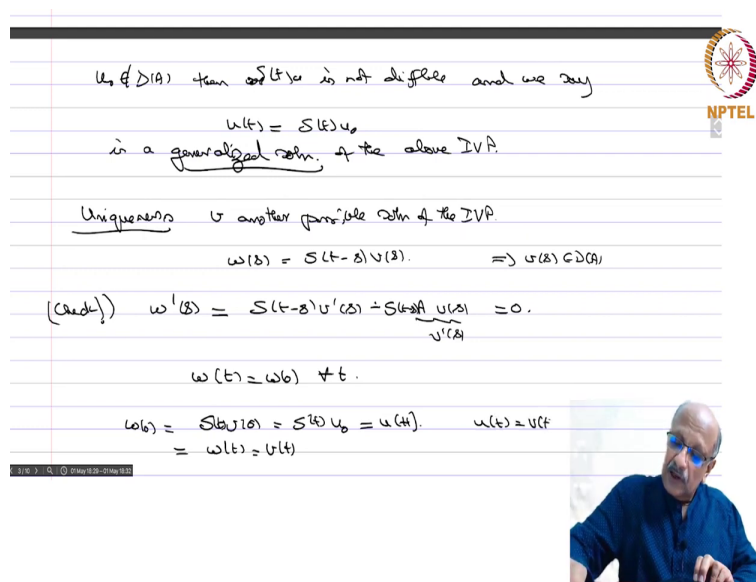 u₀ ∉ D(A) then S(t)u₀ is not diffble and we say
u(t) = S(t)u₀
is a generalized soln. of the above IVP.
Uniqueness v another possible soln of the IVP.
w(s) = S(t-s)v(s). ⇒ v(s) ∈ D(A)
(Check!) w'(s) = S(t-s)v'(s) - S(t-s)A v(s) = 0.
v'(s)
w(t) = w(0) ∀ t.
w(0) = S(t)v(0) = S(t)u₀ = u(t). u(t) = v(t
= w(t) = v(t)
NPTEL
3 / 10
01 May 18:29 - 01 May 18:32